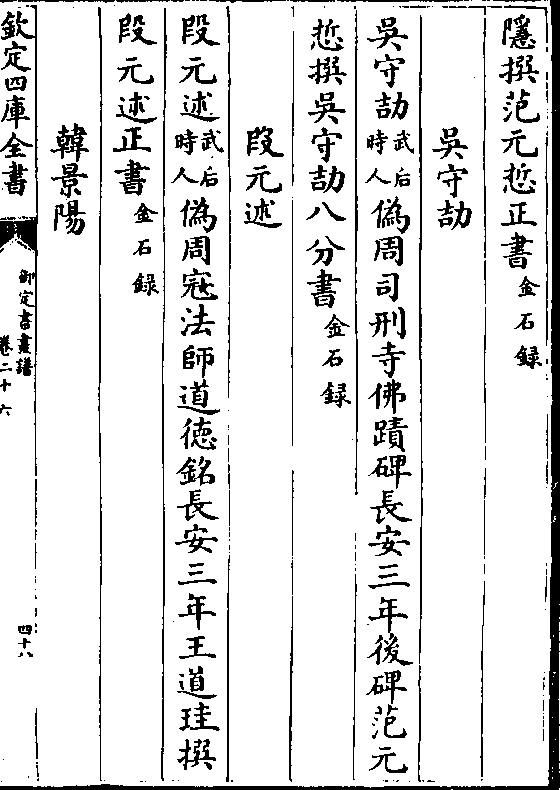 隱撰范元悊正書金石録
吳守劼
吳守劼武后時人偽周司刑寺佛蹟碑長安三年後碑范元
悊撰吳守劼八分書金石録
段元述
段元述武后時人偽周宼法師道徳銘長安三年王道珪撰
段元述正書金石録
韓景陽
欽定四庫全書
御定書畫譜
卷二十六
四十八